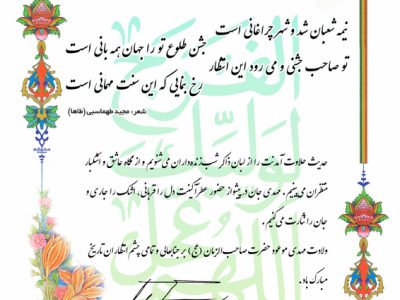 نیمه شعبان شد و شهر چراغانی است
جشن طلوع تو را جهان همه بانی است
تو صاحب جشنی و می رود این انتظار
رخ بنمایی که این سنت مهمانی است
شعر: مجید طهماسبی (طاها)
حدیث حلاوت آمدنت را از لبان ذاکر شب زنده داران می شنویم و از نگاه عاشق و اشکبار
منتظران می بینیم. مهدی جان در پیشواز حضور عطرآگینت دل را قربانی، اشک را جاری و
جان را نثارت می کنیم.
ولادت مهدی موعود حضرت صاحب الزمان (عج) بر جنابعالی و تمامی چشم انتظاران تاریخ
مبارک باد.
اللهم
عجل
لولیک
الفرج